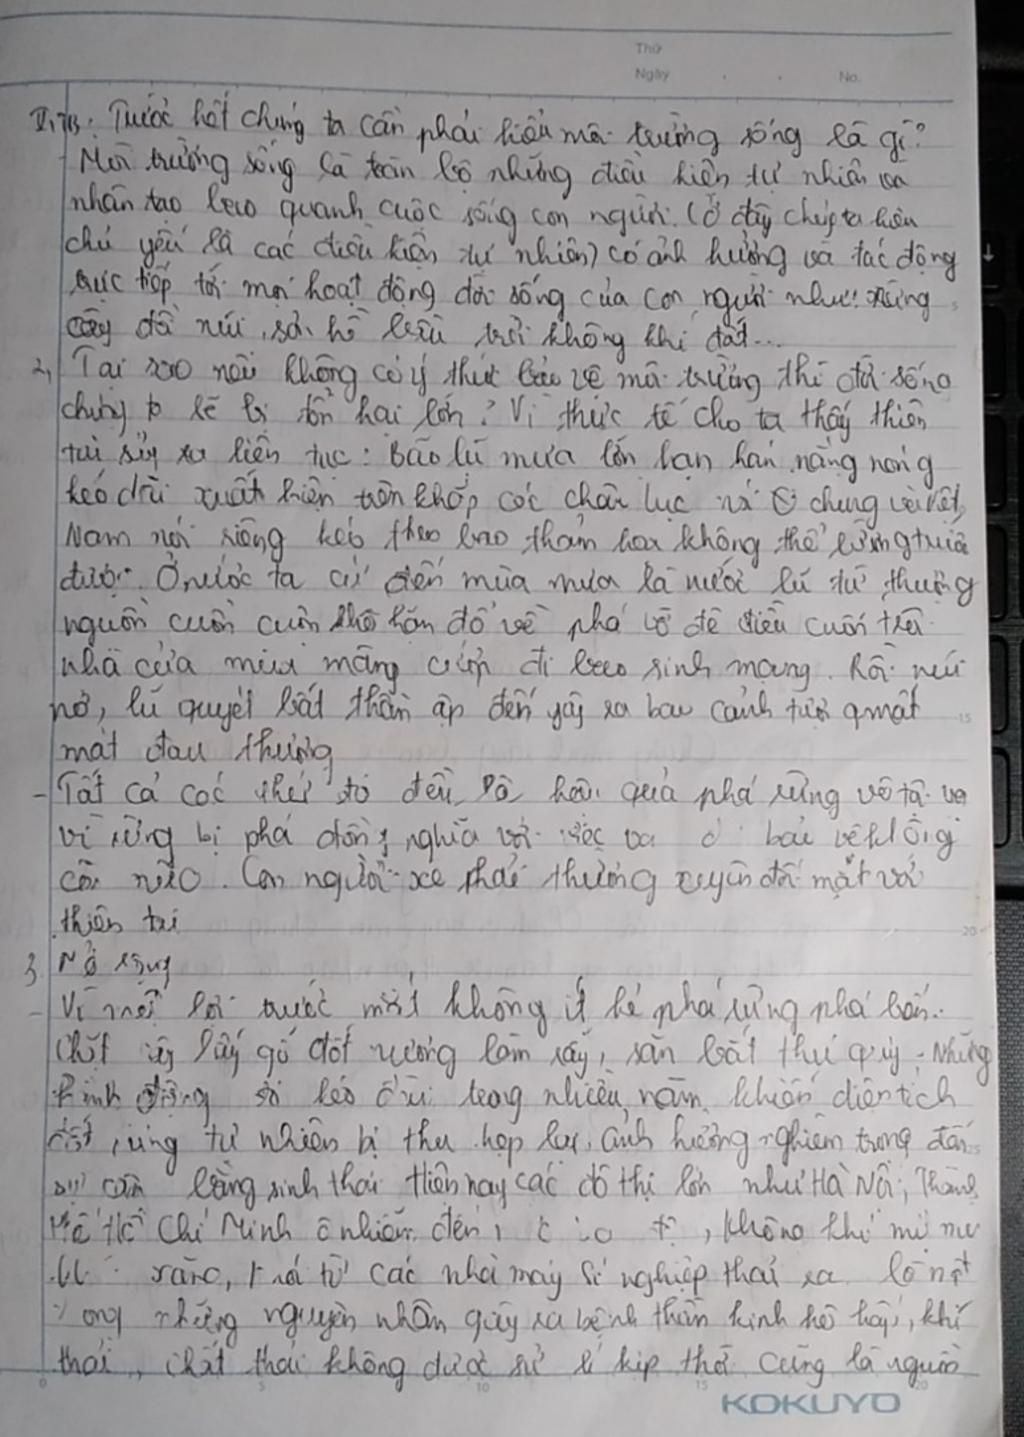 Thứ
Ngày No.
Trước hết chúng ta cần phải hiểu môi trường sống là gì?
- Môi trường sống là toàn bộ những điều kiện tự nhiên và
nhân tạo bao quanh cuộc sống con người. (ở đây chúng ta hiểu
chủ yếu là các điều kiện tự nhiên) có ảnh hưởng và tác động
trực tiếp tới mọi hoạt động đời sống của con người như: rừng
cây đồi núi, sông hồ bầu trời không khí đất...
2, Tại sao nếu không có ý thức bảo vệ môi trường thì đời sống
chúng ta sẽ bị tổn hại lớn? Vì thực tế cho ta thấy thiên
tai xảy ra liên tục: Bão lũ mưa lớn hạn hán nắng nóng
kéo dài xuất hiện trên khắp các châu lục nói chung và Việt
Nam nói riêng kéo theo bao thảm họa không thể lường trước
được. Ở nước ta cứ đến mùa mưa là nước lũ từ thượng
nguồn cuồn cuộn đổ về phá vỡ đê điều cuốn trôi
nhà cửa mùa màng cướp đi bao sinh mạng. Rồi núi
nở, lũ quyét bất thần ập đến gây ra bao cảnh tượng mất
mát đau thương
- Tất cả các thứ đó đều là hậu quả phá rừng vô tội vạ
vì rừng bị phá đồng nghĩa với việc bảo vệ không
còn nữa. Con người sẽ phải thường xuyên đối mặt với
thiên tai
3, Mở rộng
- Vì mối lợi trước mắt không ít kẻ phá rừng phá bẩn..
Chặt cây lấy gỗ đốt nương làm rẫy, săn bắt thú quý. Những
hành động đó kéo dài trong nhiều năm khiến diện tích
đất rừng tự nhiên bị thu hẹp lại, ảnh hưởng nghiêm trọng đến
sự cân bằng sinh thái Hiện nay các đô thị lớn như Hà Nội, Thành
Phố Hồ Chí Minh ô nhiễm đến, không khí mù
xăng, khói từ các nhà máy xí nghiệp thải ra là một
trong những nguyên nhân gây ra bệnh thần kinh hô hấp, khí
thải, chất thải không được xử lí kịp thời cũng là nguồn
KOKUYO